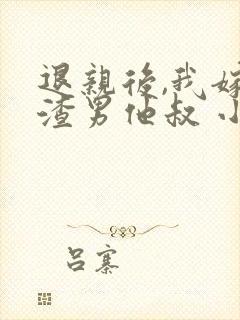 退親後,我嫁
渣男他叔 小
吕寨